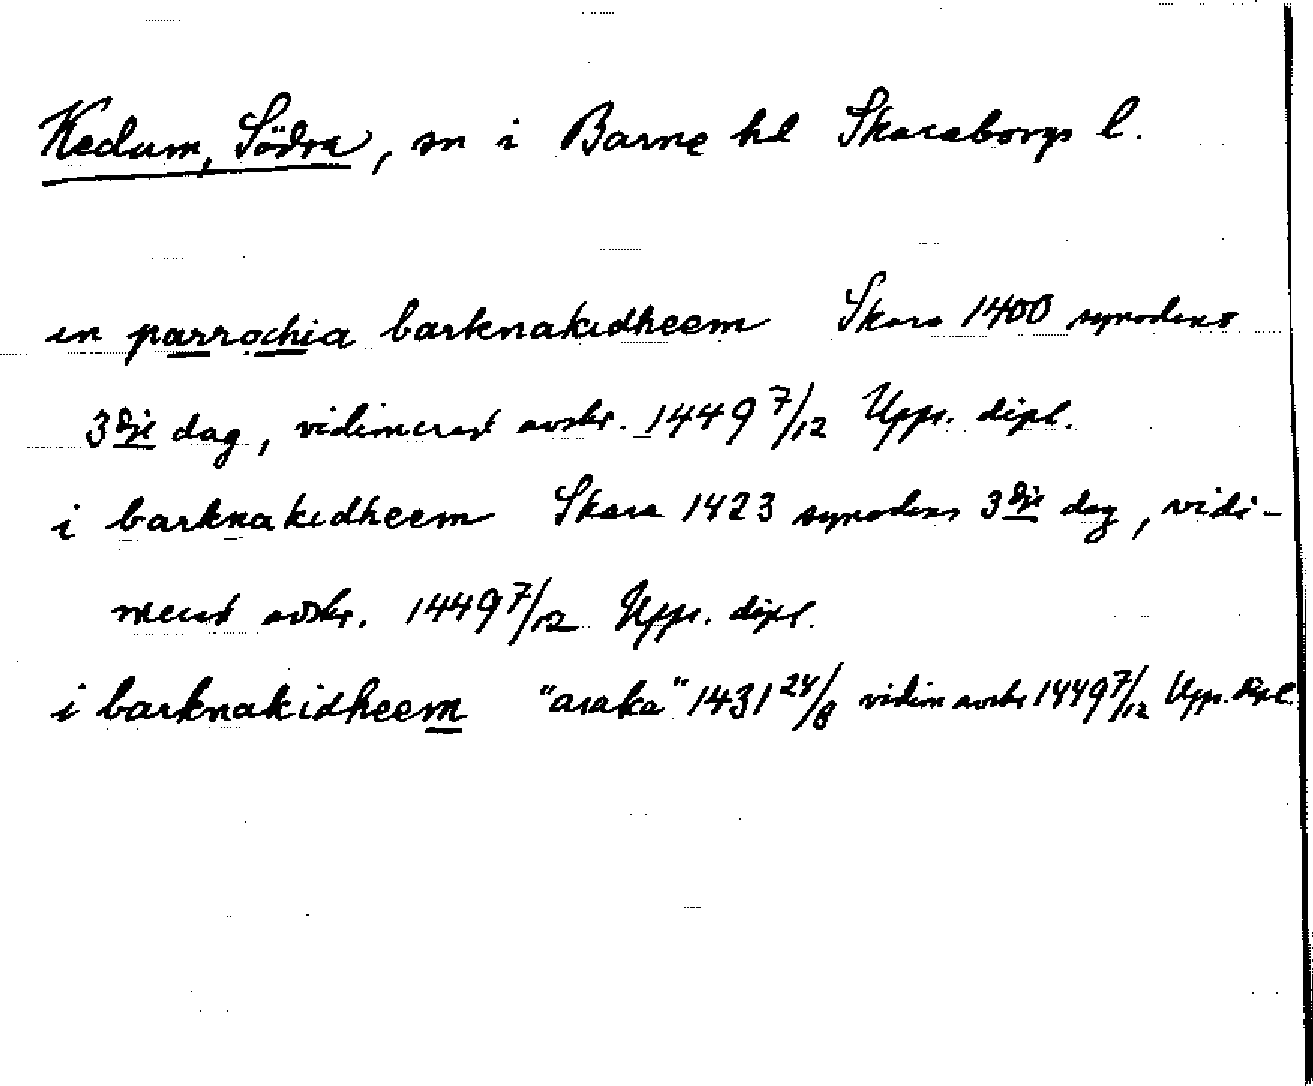 Kedum, Södra, sn i Barne hd Skaraborgs l.
in parrochia barknakidheem Skara 1400 synodens
3dje dag, vidimerad avskr. 1449 7/12 Upps. dipl.
i barknakidheem Skara 1423 synodens 3dje dag, vidi-
merad avskr. 1449 7/12 Upps. dipl.
i barknakidheem "asaka" 1431 24/8 vidim avskr 1449 7/12 Upps. dipl.